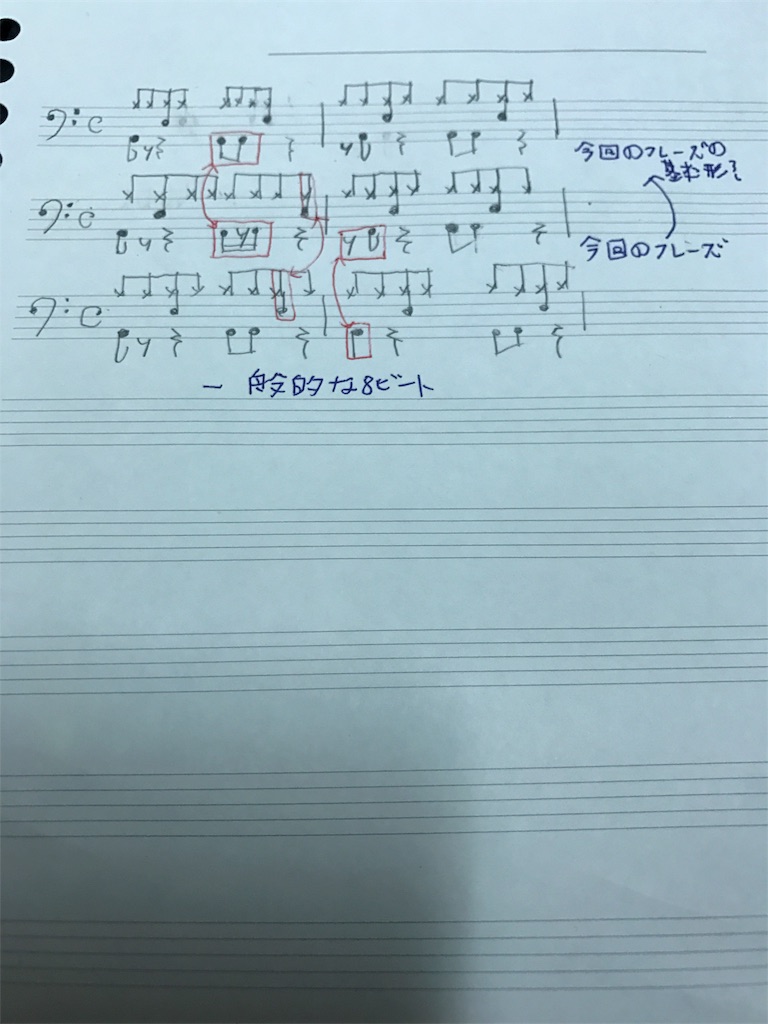 今回のフレーズの
基本形?
今回のフレーズ
一般的な8ビート